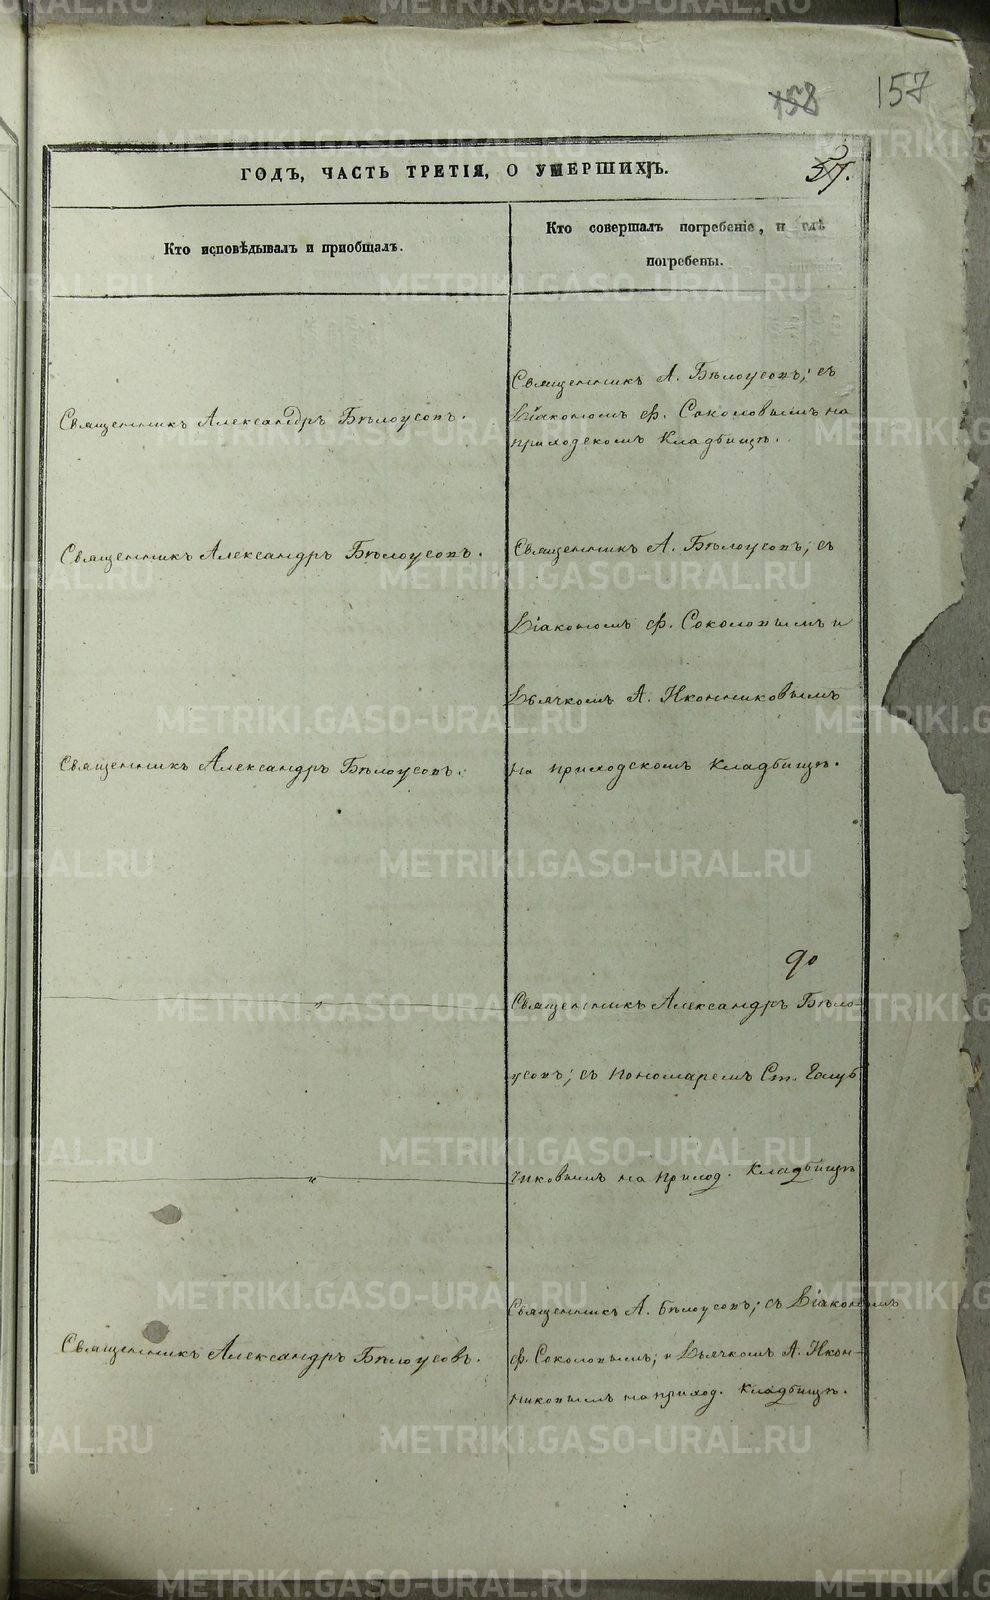 158 157
ГОДЪ, ЧАСТЬ ТРЕТІЯ, О УМЕРШИХЪ.
57.
Кто исповѣдывалъ и пріобщалъ.
Кто совершалъ погребеніе, и гдѣ
погребены.
Священникъ Александръ Бѣлоусовъ.
Священникъ А. Бѣлоусовъ; съ
Діакономъ Ф. Соколовымъ на
приходскомъ Кладбищѣ.
Священникъ Александръ Бѣлоусовъ.
Священникъ А. Бѣлоусовъ; съ
Діакономъ Ф. Соколовымъ и
Дьячкомъ А. Иконниковымъ
Священникъ Александръ Бѣлоусовъ.
на приходскомъ Кладбищѣ.
90
Священникъ Александръ Бѣло-
усовъ; съ Пономаремъ Ст. Голуб
чиковымъ на приход. Кладбищѣ
Священникъ Александръ Бѣлоусовъ.
Священникъ А. Бѣлоусовъ; съ Діакономъ
Ф. Соколовымъ; и Дьячкомъ А. Икон-
никовымъ на приход. Кладбищѣ.
METRIKI.GASO-URAL.RU